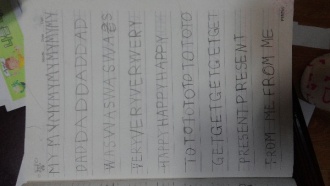 MY MY MY MY MY MY MY MY
DAD DAD DAD DAD DAD
WAS WAS WAS WAS WAS
VERY VERY VERY VERY
HAPPY HAPPY HAPPY
TO TO TO TO TO TO TO TO
GET GET GET GET GET GET
PRESENT PRESENT
FROM ME FROM ME